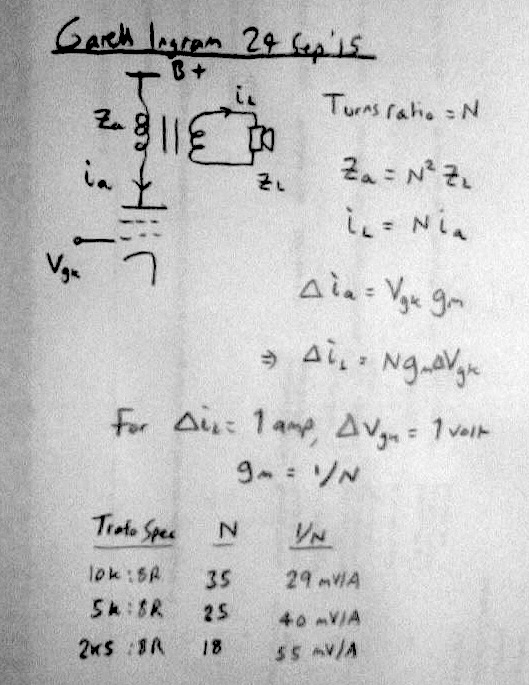 Gareth Ingram 24 Sep '15
B+
Za
iL
ZL
ia
Vgk
Turns ratio = N
Za = N² ZL
iL = N ia
Δia = Vgk gm
⇒ ΔiL = N gm ΔVgk
For ΔiL = 1 amp, ΔVgk = 1 volt
gm = 1/N
Trafo Spec N 1/N
10k : 8R 35 29 mV/A
5k : 8R 25 40 mV/A
2k5 : 8R 18 55 mV/A